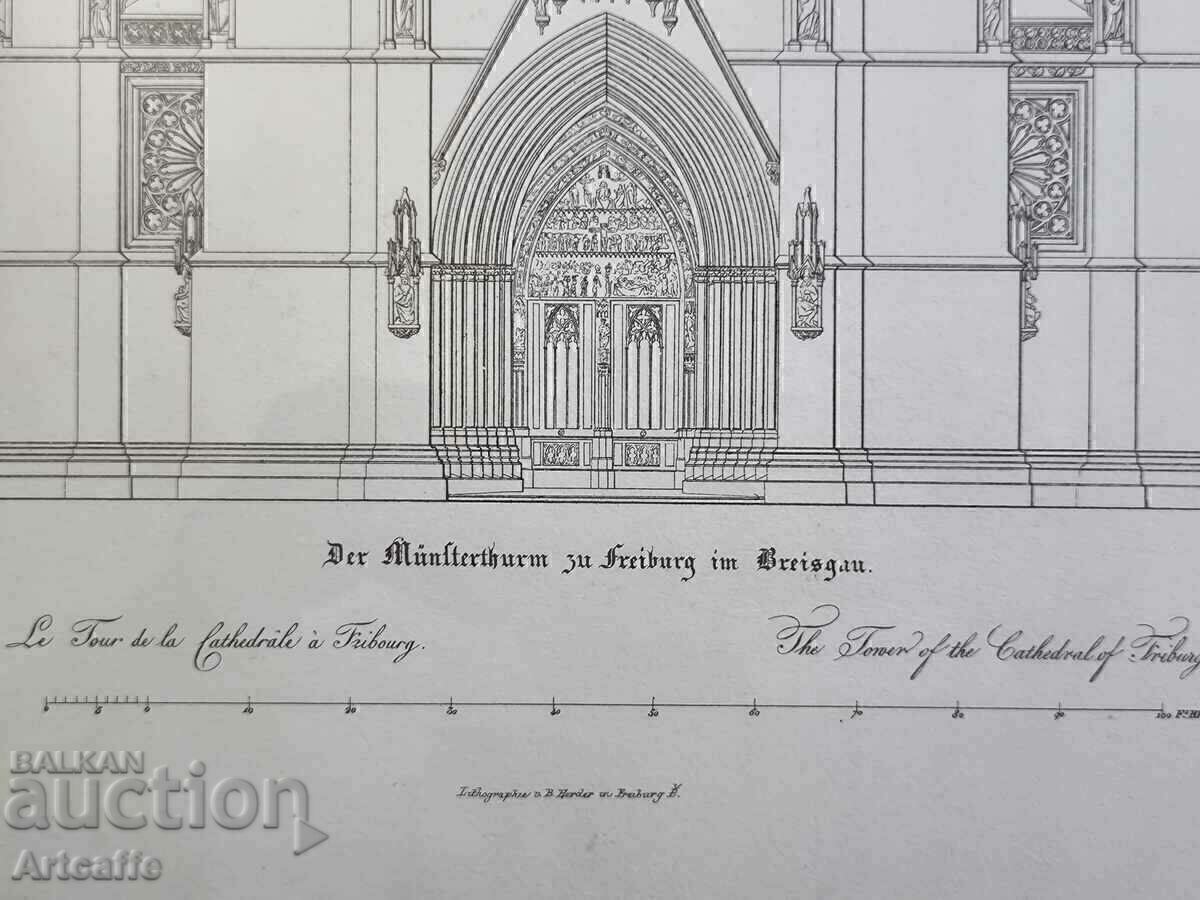 Der Münsterthurm zu Freiburg im Breisgau.
Le Tour de la Cathedrâle à Fribourg.
The Tower of the Cathedral of Friburg
0 5 0 10 20 30 40 50 60 70 80 90 100
Lithographie v. B. Herder in Freiburg
BALKAN
auction
Artcaffe